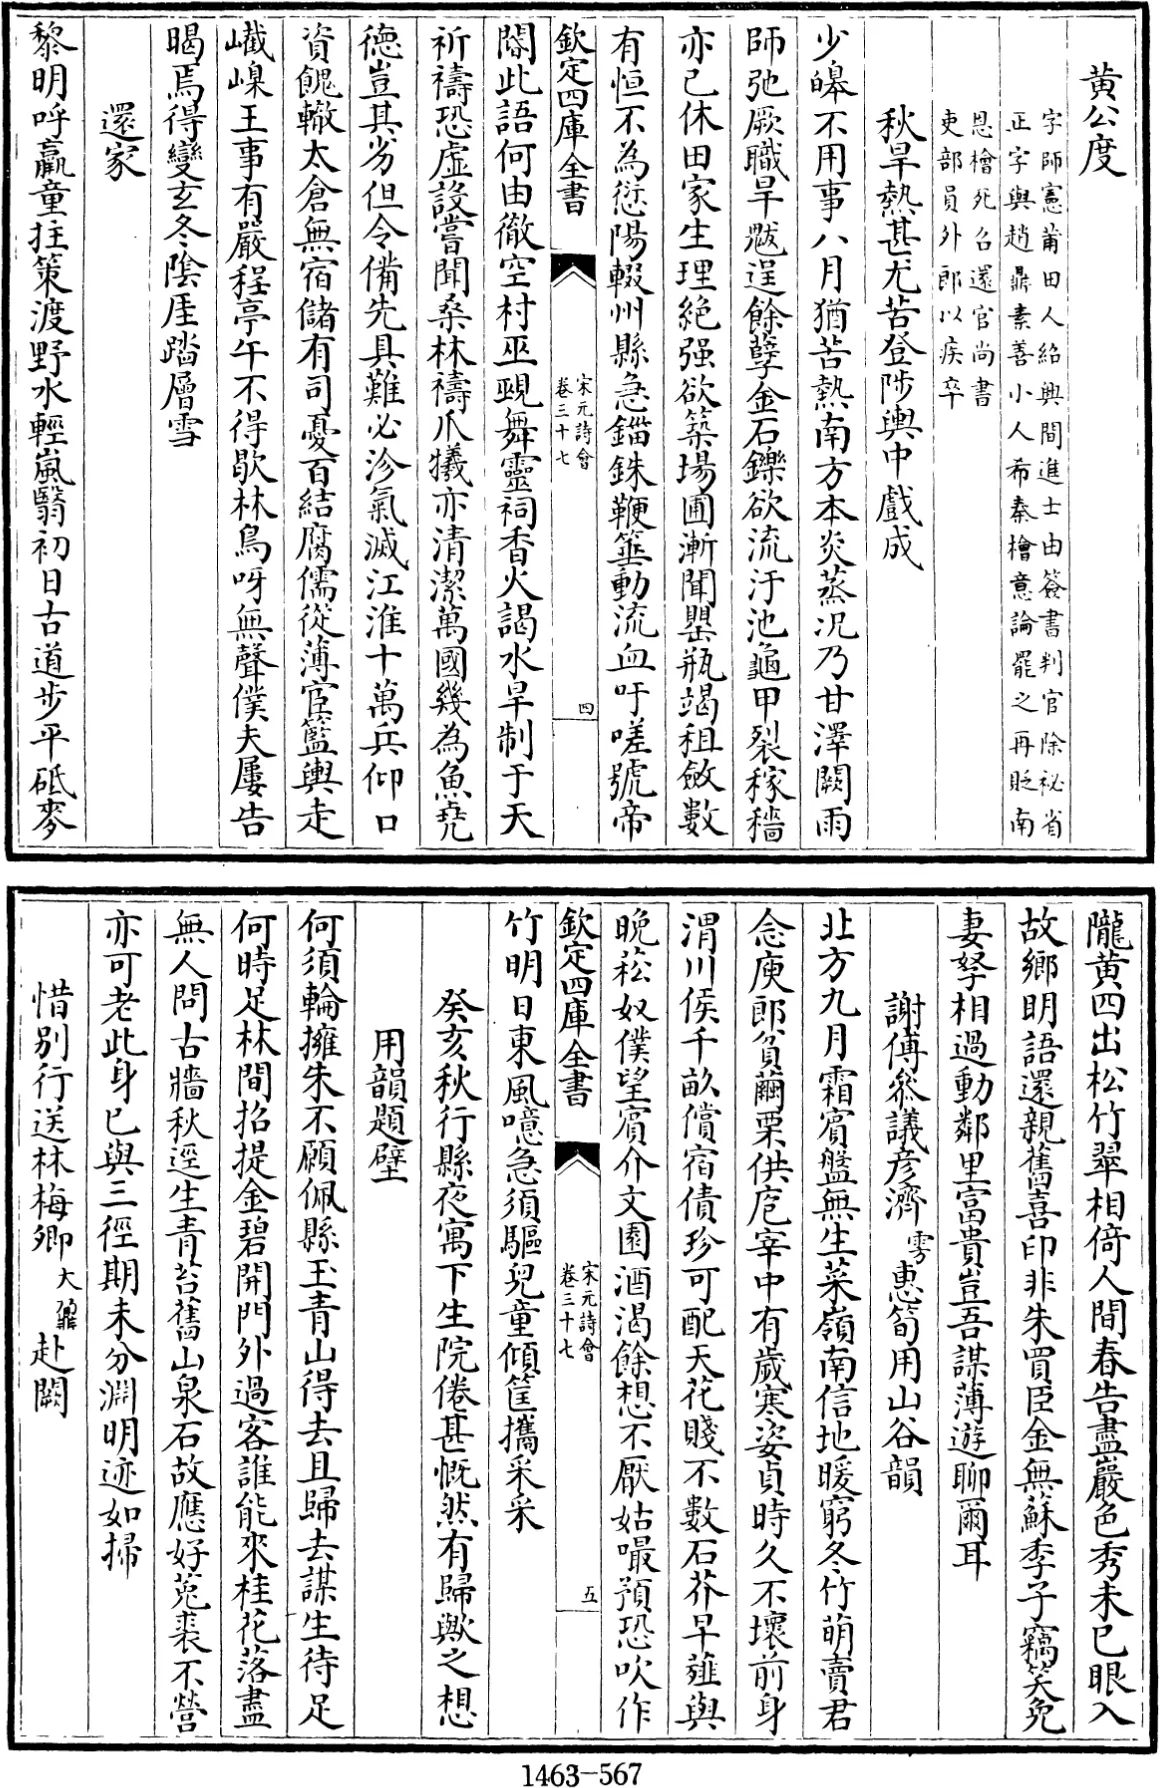 黄公度
字師憲莆田人紹興間進士由簽書判官除祕省
正字與趙鼎素善小人希秦檜意論罷之再貶南
恩檜死召還官尚書
吏部員外郎以疾卒
秋旱熱甚尤苦登陟輿中戲成
少皞不用事八月猶苦熱南方本炎蒸况乃甘澤闕雨
師弛厥職旱魃逞餘孽金石鑠欲流汙池龜甲裂稼穡
亦已休田家生理絶强欲築場圃漸聞罌瓶竭租斂數
有恒不為愆陽輟州縣急錙銖鞭箠動流血吁嗟號帝
欽定四庫全書
宋元詩會
卷三十七
四
閽此語何由徹空村巫覡舞靈祠香火謁水旱制于天
祈禱恐虛設嘗聞桑林禱爪犧亦清潔萬國幾為魚堯
德豈其劣但令備先具難必沴氣滅江淮十萬兵仰口
資餽轍太倉無宿儲有司憂百結腐儒從薄宦籃輿走
巀嵲王事有嚴程亭午不得歇林鳥呀無聲僕夫屢告
暍焉得變玄冬陰厓踏層雪
還家
黎明呼羸童拄策渡野水輕嵐翳初日古道步平砥麥
隴黄四出松竹翠相倚人間春告盡巖色秀未已眼入
故鄉明語還親舊喜印非朱買臣金無蘇季子竊笑免
妻孥相過動鄰里富貴豈吾謀薄遊聊爾耳
謝傅叅議彦濟雱惠筍用山谷韻
北方九月霜賔盤無生菜嶺南信地暖窮冬竹萌賣君
念庾郎貧繭栗供庖宰中有歲寒姿貞時久不壞前身
渭川侯千畝償宿債珍可配天花賤不數石芥早薤與
晚菘奴僕望賔介文園酒渴餘想不厭姑嘬預恐吹作
欽定四庫全書
宋元詩會
卷三十七
五
竹明日東風噫急須驅兒童傾筐攜采采
癸亥秋行縣夜寓下生院倦甚慨然有歸歟之想
用韻題壁
何須輪擁朱不願佩縣玉青山得去且歸去謀生待足
何時足林間招提金碧開門外過客誰能來桂花落盡
無人問古牆秋逕生青苔舊山泉石故應好菟裘不營
亦可老此身已與三徑期未分淵明迹如掃
惜别行送林梅卿大鼐赴闕
1463-567